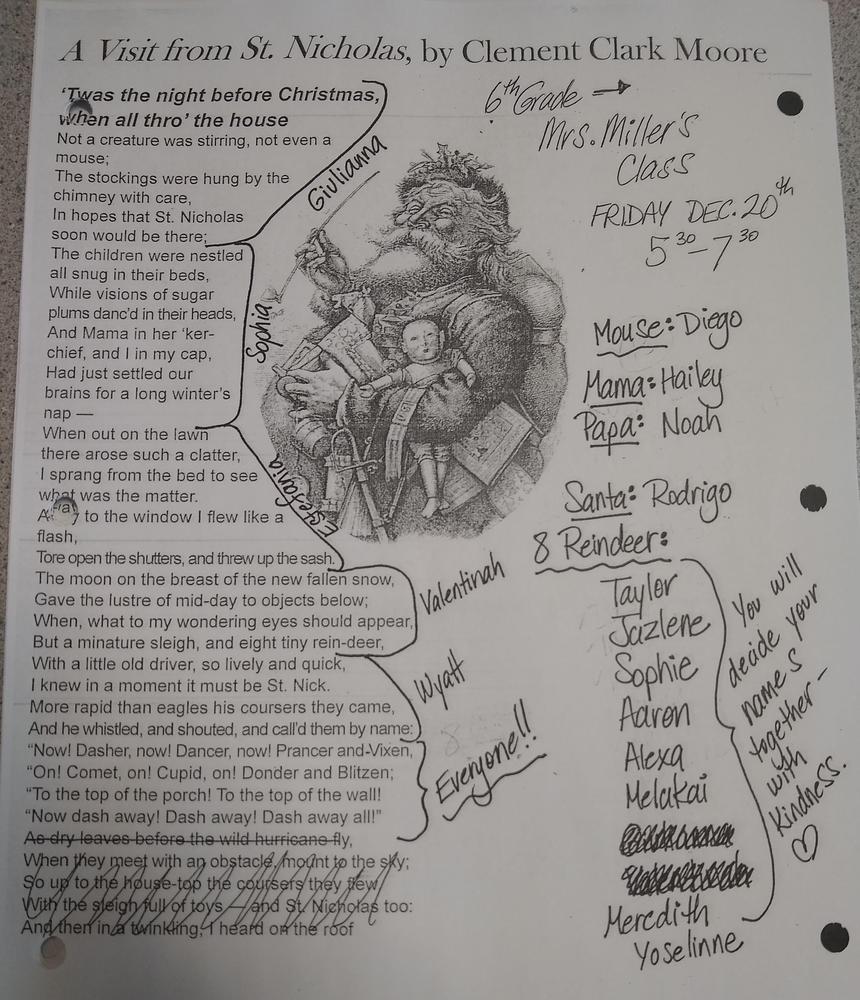 A Visit from St. Nicholas, by Clement Clark Moore
'Twas the night before Christmas,
when all thro' the house
Not a creature was stirring, not even a
mouse;
The stockings were hung by the
chimney with care,
In hopes that St. Nicholas
soon would be there;
Giulianna
The children were nestled
all snug in their beds,
While visions of sugar
plums danc'd in their heads,
And Mama in her 'ker-
chief, and I in my cap,
Had just settled our
brains for a long winter's
nap —
Sophia
When out on the lawn
there arose such a clatter,
I sprang from the bed to see
what was the matter.
to the window I flew like a
flash,
Tore open the shutters, and threw up the sash.
Estefania
The moon on the breast of the new fallen snow,
Gave the lustre of mid-day to objects below;
When, what to my wondering eyes should appear,
But a minature sleigh, and eight tiny rein-deer,
Valentinah
With a little old driver, so lively and quick,
I knew in a moment it must be St. Nick.
More rapid than eagles his coursers they came,
And he whistled, and shouted, and call'd them by name:
Wyatt
"Now! Dasher, now! Dancer, now! Prancer and Vixen,
"On! Comet, on! Cupid, on! Donder and Blitzen;
"To the top of the porch! To the top of the wall!
"Now dash away! Dash away! Dash away all!"
Everyone!!
As dry leaves before the wild hurricane fly,
When they meet with an obstacle, mount to the sky;
So up to the house-top the coursers they flew
With the sleigh full of toys — and St. Nicholas too:
And then in a twinkling, I heard on the roof
6th Grade →
Mrs. Miller's
Class
FRIDAY DEC. 20th
5 30 - 7 30
Mouse: Diego
Mama: Hailey
Papa: Noah
Santa: Rodrigo
8 Reindeer:
Taylor
Jazlene
Sophie
Aaron
Alexa
Melakai
Meredith
Yoselinne
You will
decide your
names
together –
with
kindness.